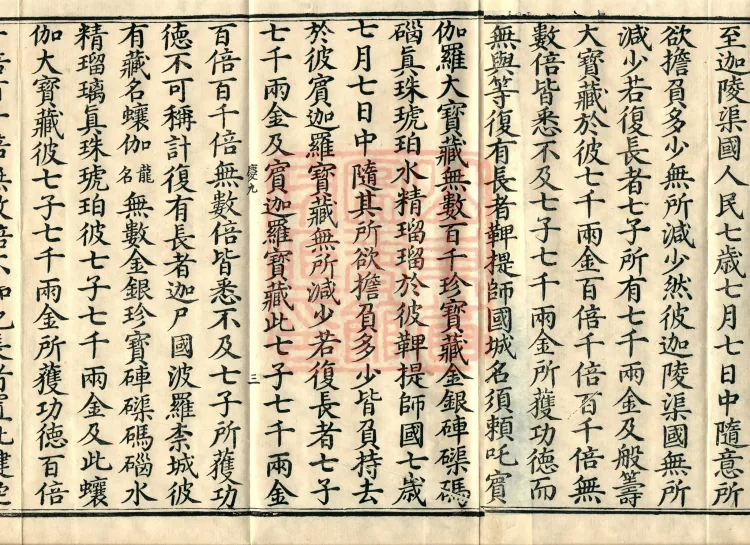 至迦陵渠國人民七歲七月七日中隨意所
欲擔負多少無所減少然彼迦陵渠國無所
減少若復長者七子所有七千兩金及般籌
大寶藏於彼七千兩金百倍千倍百千倍無
數倍皆悉不及七子七千兩金所獲功德而
無與等復有長者鞞提師國城名須賴吒賓
伽羅大寶藏無數百千珍寶藏金銀硨磲碼
碯真珠琥珀水精瑠瑠於彼鞞提師國七歲
七月七日中隨其所欲擔負多少皆負持去
於彼賓迦羅寶藏無所減少若復長者七子
七千兩金及賓迦羅寶藏此七子七千兩金
慶九
三
百倍百千倍無數倍皆悉不及七子所獲功
德不可稱計復有長者迦尸國波羅柰城彼
有藏名蠰伽龍名無數金銀珍寶硨磲碼碯水
精瑠璃真珠琥珀彼七子七千兩金及此蠰
伽大寶藏彼七子七千兩金所獲功德百倍